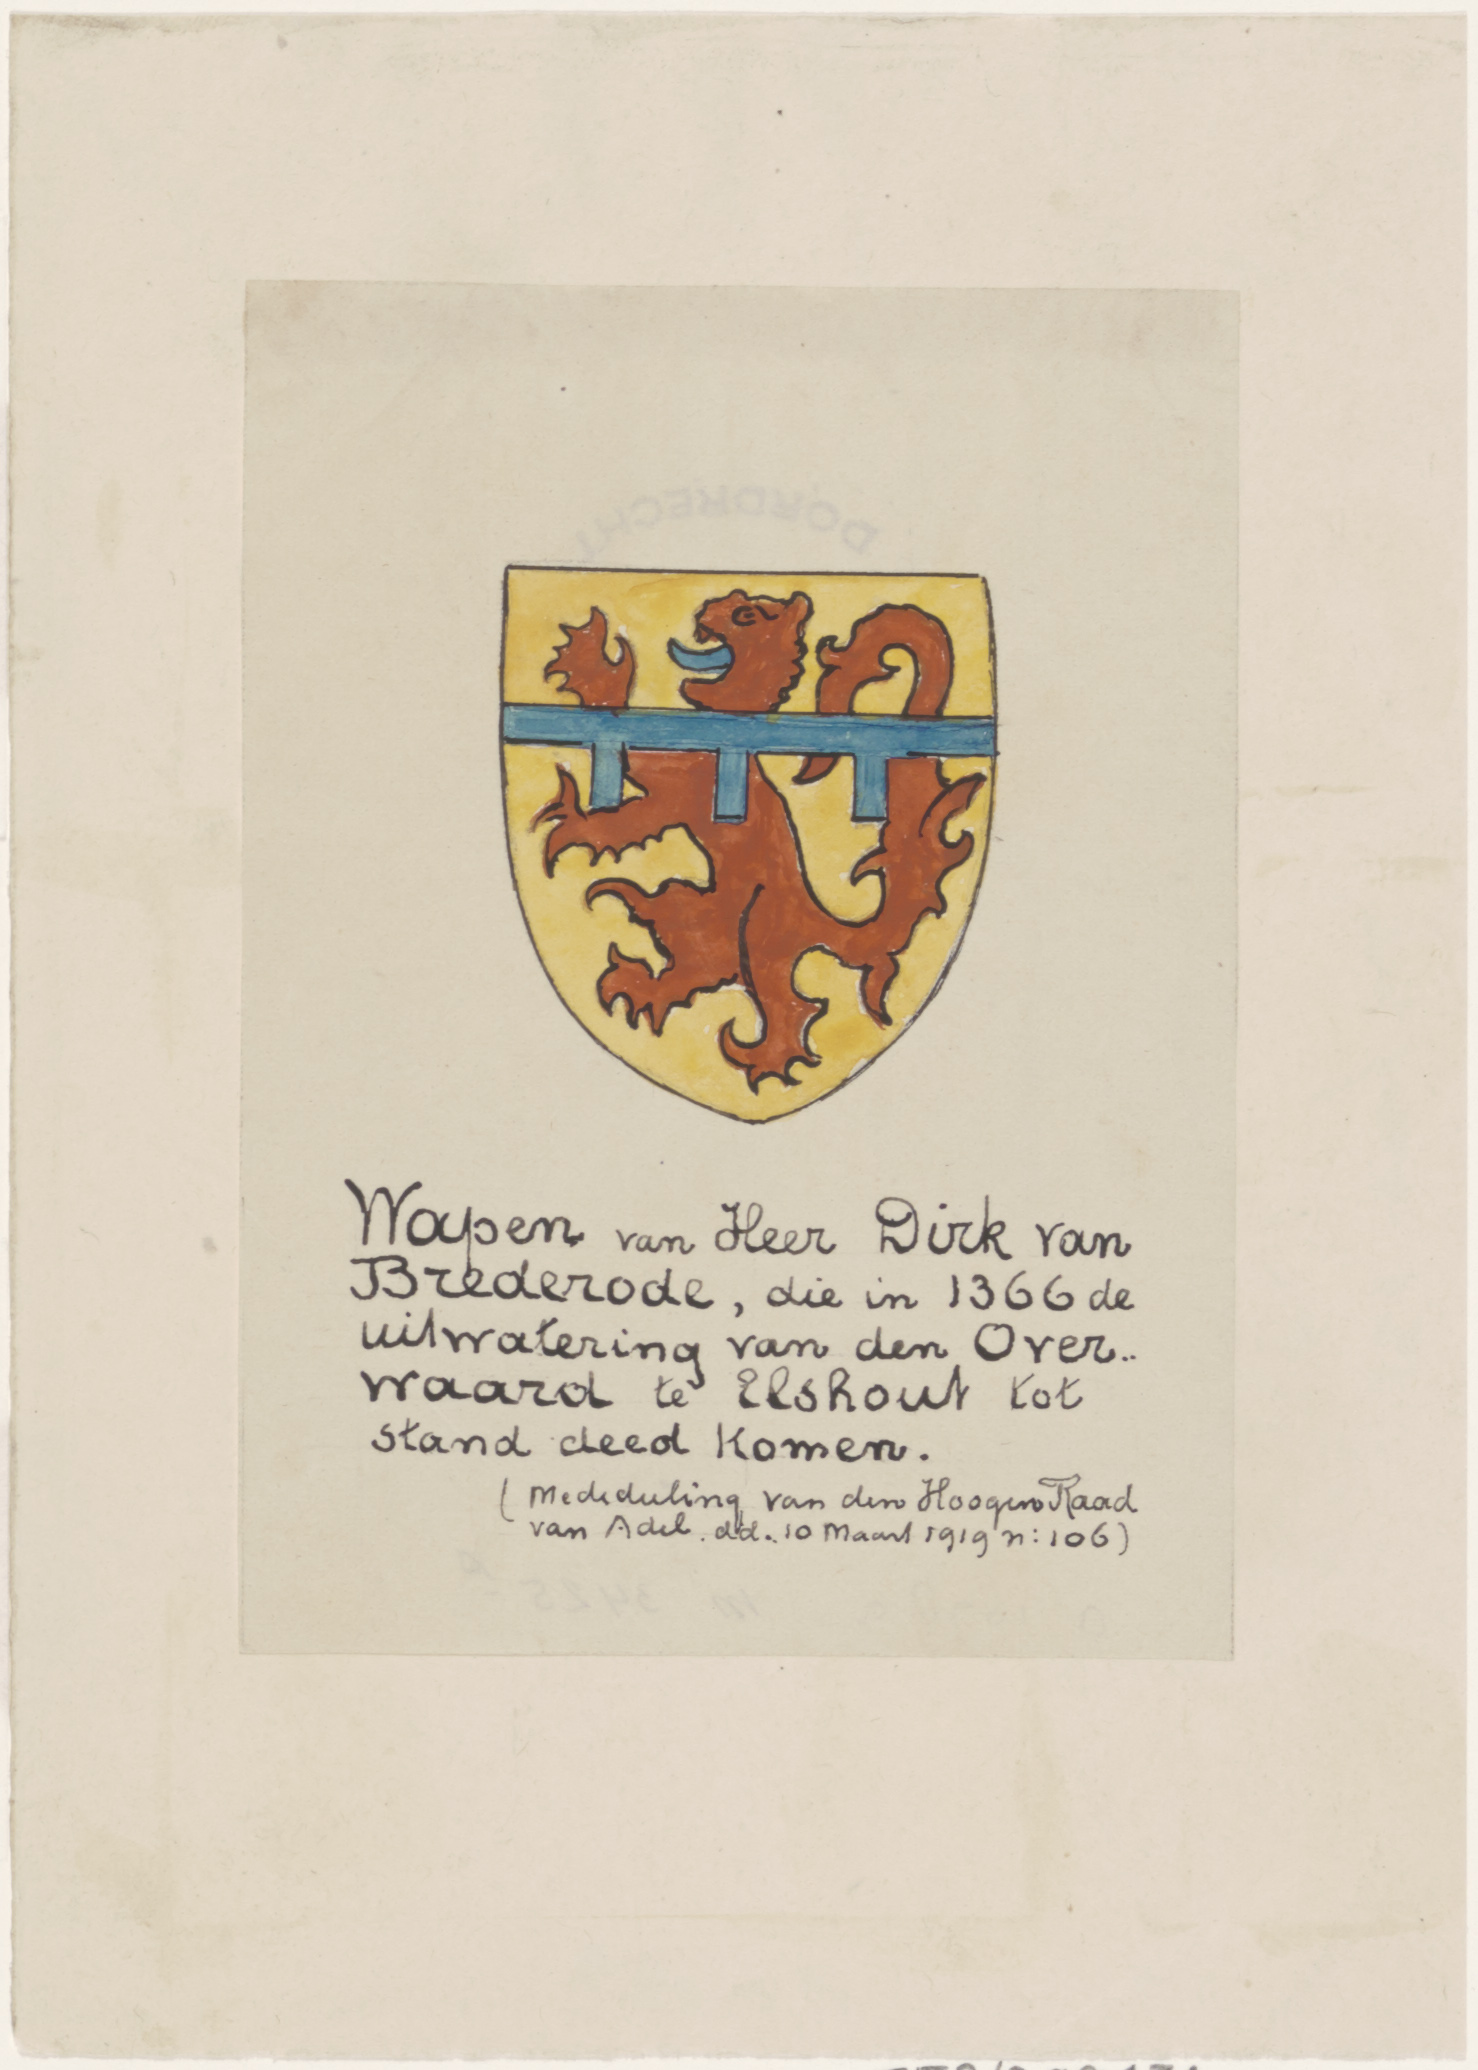 DORDRECHT
Wapen van Heer Dirk van
Brederode, die in 1366 de
uitwatering van den Over..
waard te Elshout tot
stand deed komen.
( Mededeeling van den Hoogen Raad
van Adel. dd. 10 Maart 1919 n: 106)